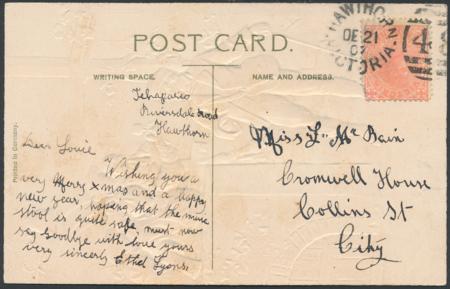 POST CARD.
HAWTHORN
DE 21
07
VICTORIA
WRITING SPACE.
NAME AND ADDRESS.
Riversdale Road
Hawthorn
Dear Louie
Wishing you a
very Merry Xmas and a happy
new year, hoping that the music
stool is quite safe must now
say Goodbye with love yours
very sincerely Ethel Lyons.
Miss L. McBain
Cromwell House
Collins St
City
Printed in Germany.